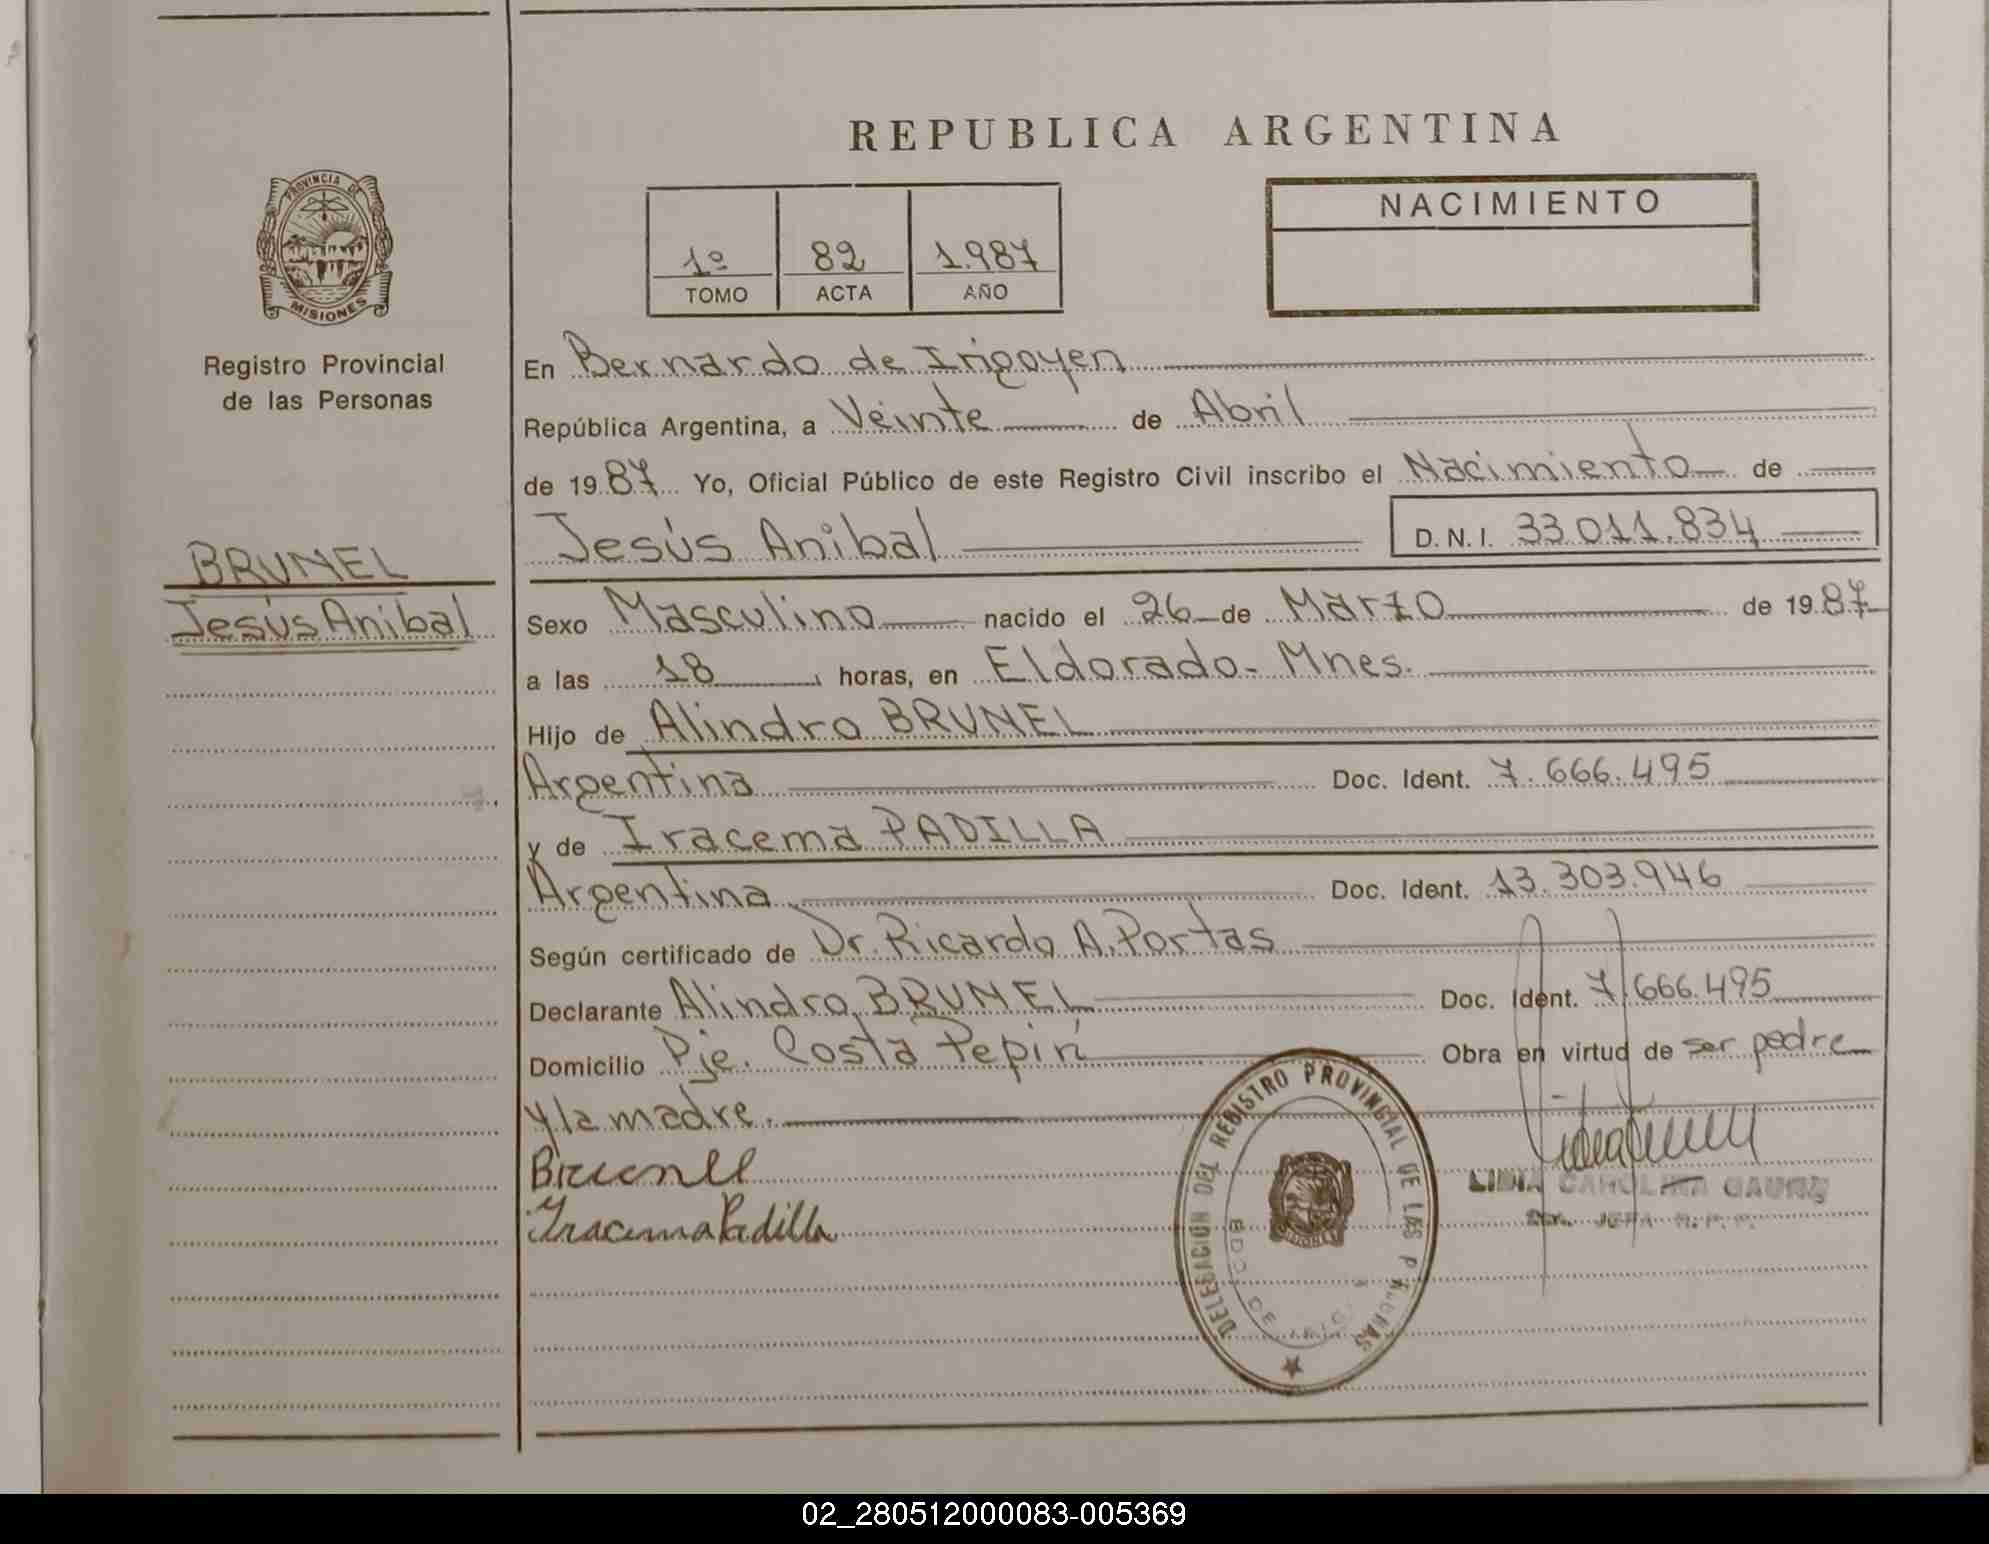 REPUBLICA ARGENTINA
PROVINCIA DE
MISIONES
Registro Provincial
de las Personas
1º 82 1.987
TOMO ACTA AÑO
NACIMIENTO
En Bernardo de Irigoyen
República Argentina, a Veinte de Abril
de 19 87 Yo, Oficial Público de este Registro Civil inscribo el Nacimiento de
Jesús Anibal D.N.I. 33.011.834
BRUNEL
Jesús Anibal
Sexo Masculino nacido el 26 de Marzo de 19 87
a las 18 horas, en Eldorado- Mnes.
Hijo de Alindro BRUNEL
Argentina Doc. Ident. 7.666.495
y de Iracema PADILLA
Argentina Doc. Ident. 13.303.946
Según certificado de Dr. Ricardo A. Portas
Declarante Alindro BRUNEL Doc. Ident. 7.666.495
Domicilio Pje. Costa Pepirí Obra en virtud de ser padre
y la madre.
Brunell
Iracema Padilla
DELEGACION DEL REGISTRO PROVINCIAL DE LAS PERSONAS
BDO. DE
MISIONES
LIDIA CAROLINA
JEFA R. P. P.
02_280512000083-005369